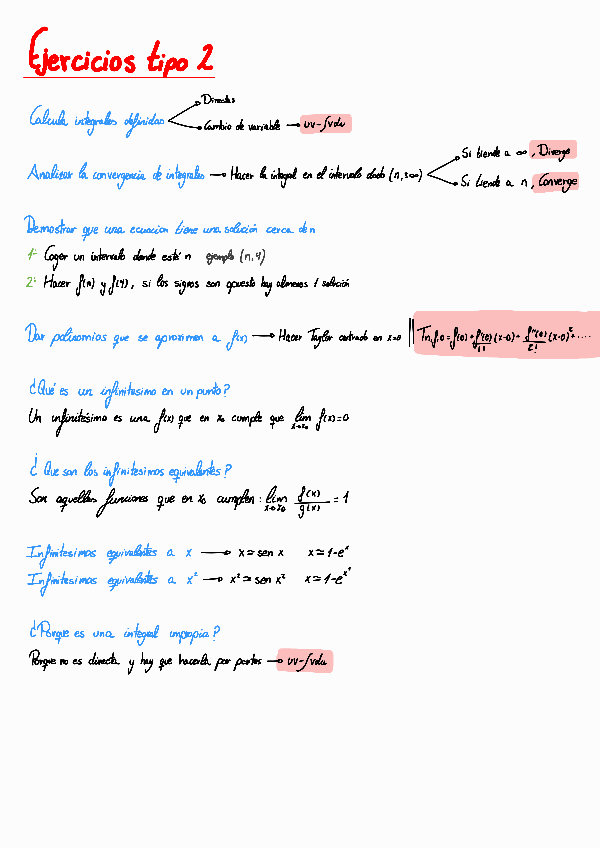 Ejercicios tipo 2
Calcula integrales definidas
Directas
Cambio de variable → uv-∫vdu
Analizar la convergencia de integrales → Hacer la integal en el intervalo dado (n,+∞)
Si tiende a ∞, Diverge
Si tiende a n, Converge
Demostrar que una ecuacion tiene una solución cerca de n
1º Coger un intervalo donde esté n ejemplo (n,4)
2º Hacer f(n) y f(4), si los signos son opuesto hay almenos 1 solución
Dar polinomios que se aproximen a f(x) → Hacer Taylor centrado en x=0 || Tn,f,0 = f(0) + f'(0)/1! (x-0) + f''(0)/2! (x-0)² + ....
¿Qué es un infinitesimo en un punto?
Un infinitésimo es una f(x) que en x₀ cumple que lim x→x₀ f(x)=0
¿Que son los infinitesimos equivalentes?
Son aquellas funciones que en x₀ cumplen: lim x→x₀ f(x)/g(x) = 1
Infinitesimos equivalentes a x → x≃sen x x≃1-eˣ
Infinitesimos equivalentes a x² → x²≃sen x² x≃1-e^x²
¿Porque es una integral impropia?
Porque no es directa y hay que hacerla por partes → uv-∫vdu